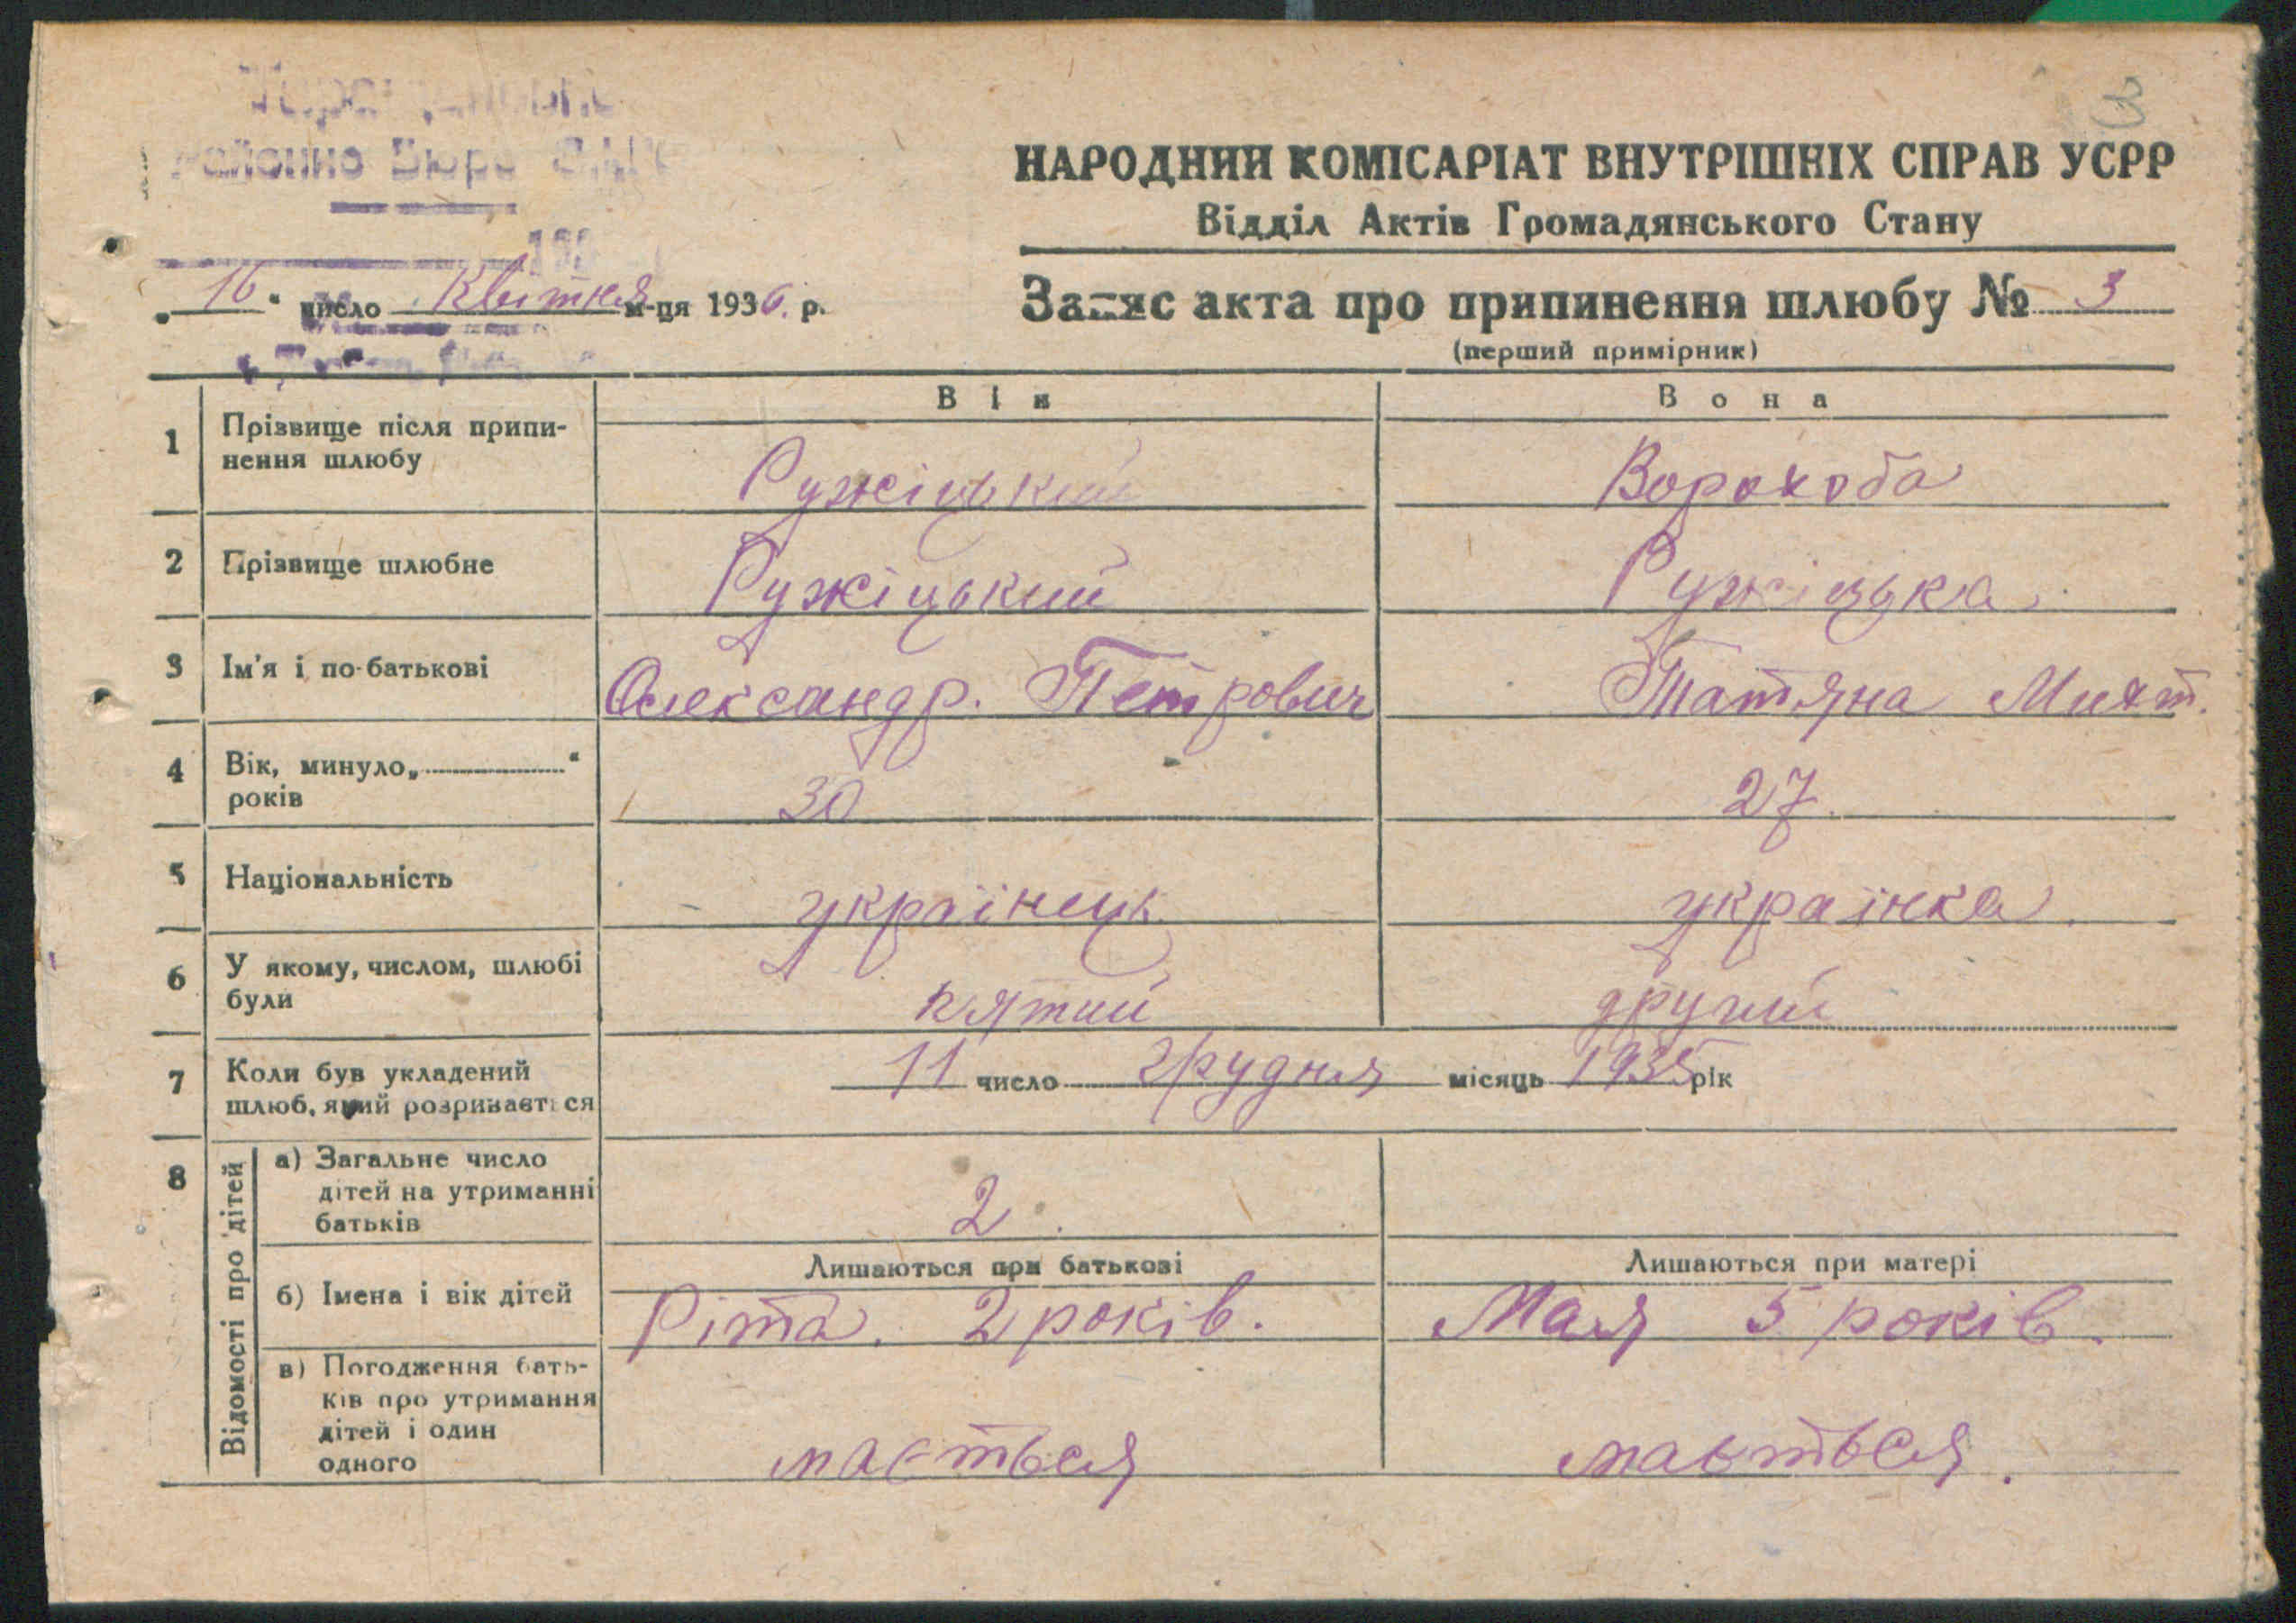 Районно Бюро ЗАГС
НАРОДНИЙ КОМІСАРІАТ ВНУТРІШНІХ СПРАВ УСРР
Відділ Актів Громадянського Стану
„16“ число Квітня м-ця 1936. р.
Запис акта про припинення шлюбу № 3
(перший примірник)
Він Вона
1 Прізвище після припи-
нення шлюбу Ружіцький Ворохоба
2 Прізвище шлюбне Ружіцький Ружіцька
3 Ім'я і по-батькові Олександр. Петрович Татяна Михт.
4 Вік, минуло „ “
років 30 27
5 Національність українець українка
6 У якому, числом, шлюбі
були пятий другий
7 Коли був укладений
шлюб, який розривається 11 число грудня місяць 1935 рік
8 Відомості про дітей
а) Загальне число
дітей на утриманні
батьків 2
Лишаються при батькові Лишаються при матері
б) Імена і вік дітей Ріта. 2 років. Мая 5 років.
в) Погодження бать-
ків про утримання
дітей і один
одного мається мається.